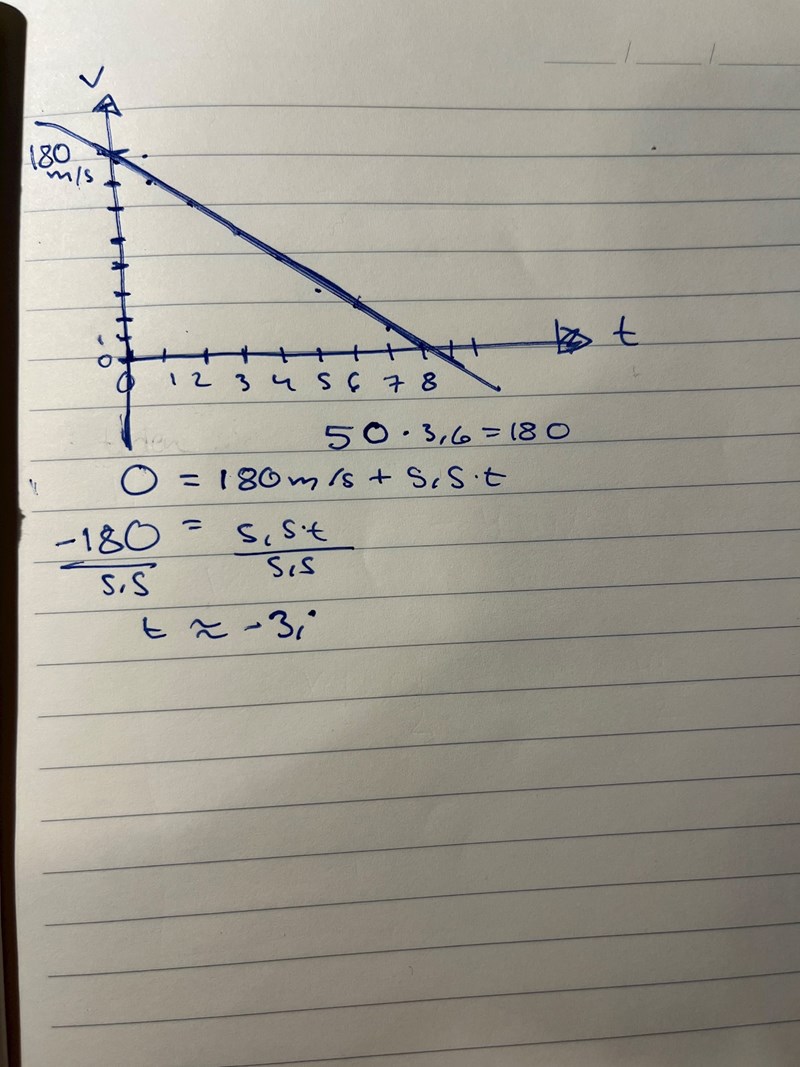 V
180
m/s
1
0
t
0 1 2 3 4 5 6 7 8
50 · 3,6 = 180
0 = 180 m/s + 5,5 · t
-180 = 5,5·t
5,5 5,5
t ≈ -3,